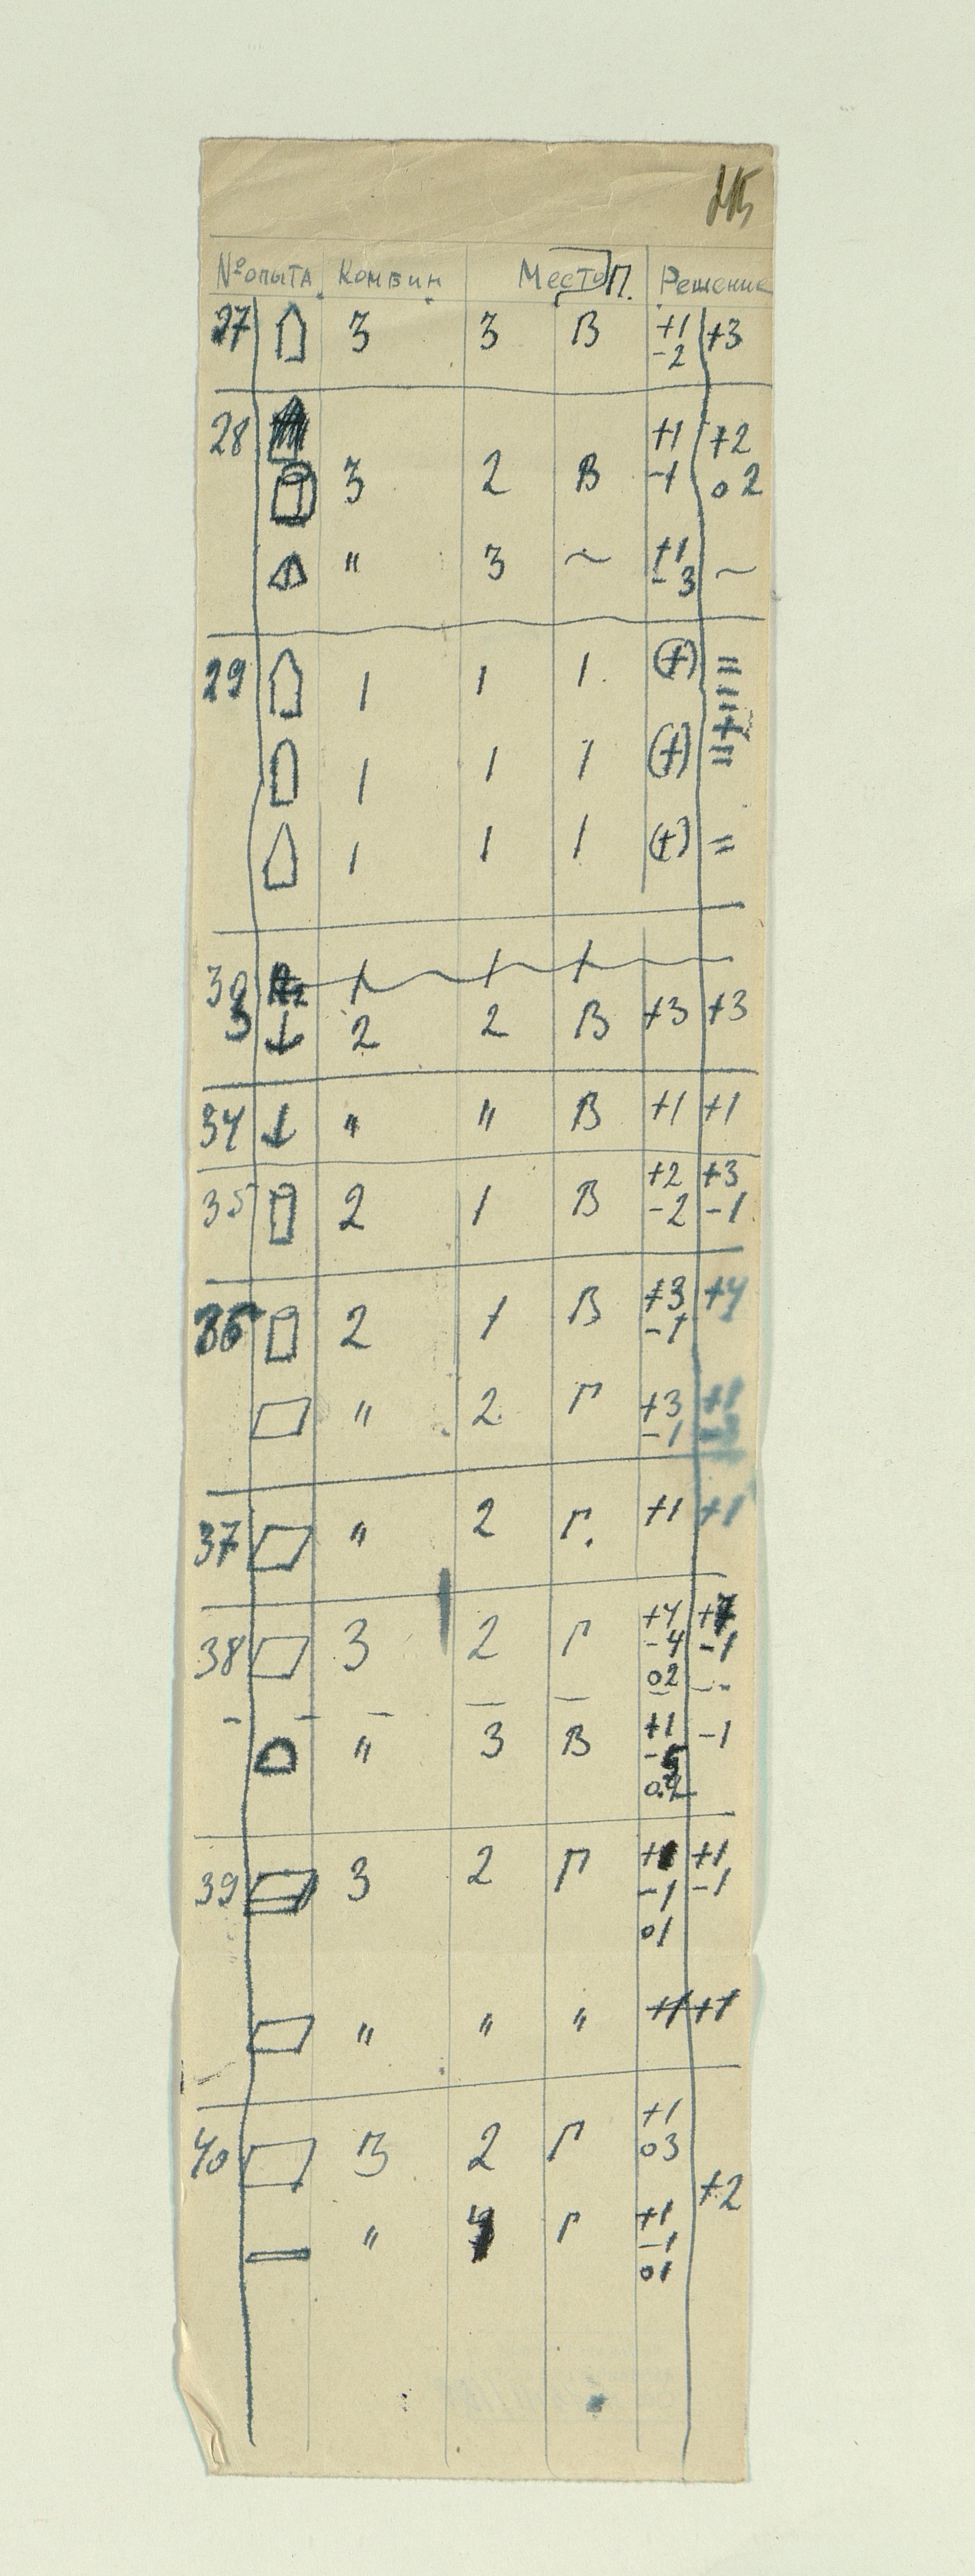 № опыта Комбин. Место П. Решение
27 3 3 В +1 +3
-2
28
+1 +2
3 2 В -1 о2
" 3 ~ +1 ~
-3
29 1 1 1 (+) =
1 1 1 (+) =
1 1 1 (+) =
30 1 1 1
3 ↓ 2 2 В +3 +3
34 ↓ " " В +1 +1
35 2 1 В +2 +3
-2 -1
36 2 1 В +3 +4
-1
" 2 Г +3
-1
37 " 2 Г. +1 +1
38 3 2 Г +4 +7
-4 -1
о2
" 3 В +1 -1
-5
о2
39 3 2 Г +1 +1
-1 -1
о1
" " " +1 +1
40 3 2 Г +1
о3
+2
" Г +1
-1
о1